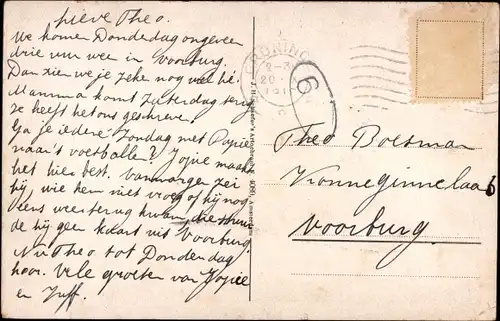 Lieve Theo.
We komen Donderdag ongeveer
drie uur weer in Voorburg.
Dan zien we je zeker nog wel hè.
Mamma komt Zaterdag terug
ze heeft het ons geschreven.
Ga je iedere Zondag met Papie
naar 't voetballen? Jopie maakt
het hier best. Vanmorgen zei
hij, wie kem niet vroeg of hij nog
eens weer terug kwam, die stuur
de hij geen kaart uit Voorburg.
Nu Theo tot Donderdag
hoor. Vele groeten van Jopie
en Juff.
GRONINGEN
6
Theo Boltman
Vronneginnelaan 6
Voorburg